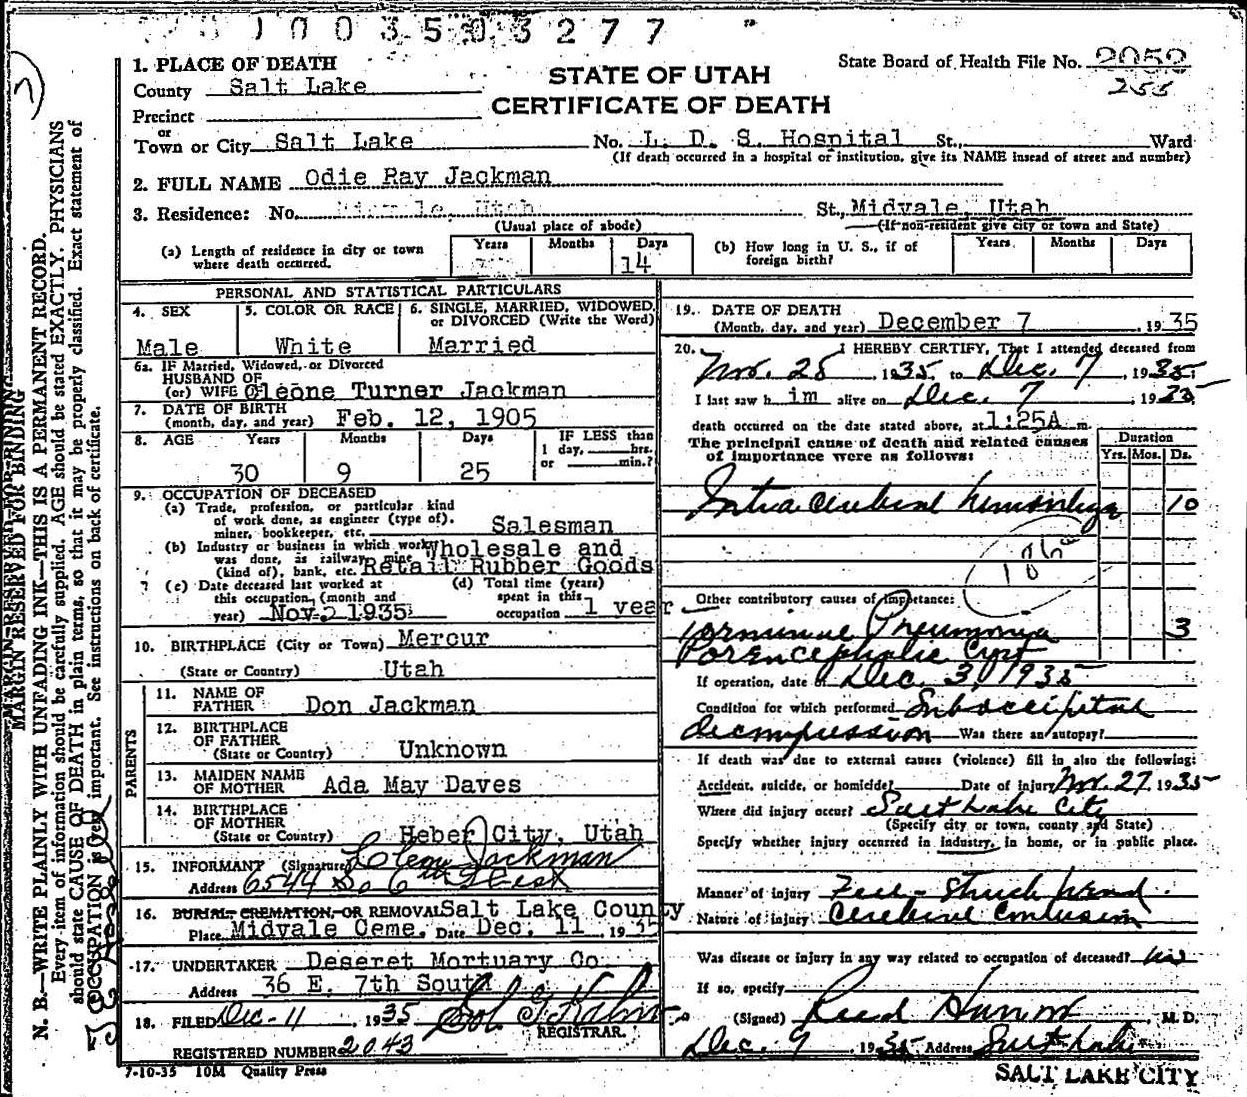 1003503277
1. PLACE OF DEATH
County Salt Lake
Precinct
or
Town or City Salt Lake
STATE OF UTAH
CERTIFICATE OF DEATH
State Board of Health File No. 2052
255
No. L. D. S. Hospital St., Ward
(If death occurred in a hospital or institution, give its NAME insead of street and number)
2. FULL NAME Odie Ray Jackman
3. Residence: No. St., Midvale, Utah
(Usual place of abode) (If non-resident give city or town and State)
(a) Length of residence in city or town where death occurred. Years Months Days 14
(b) How long in U. S., if of foreign birth? Years Months Days
PERSONAL AND STATISTICAL PARTICULARS
4. SEX Male
5. COLOR OR RACE White
6. SINGLE, MARRIED, WIDOWED, or DIVORCED (Write the Word) Married
6a. IF Married, Widowed, or Divorced
HUSBAND OF
(or) WIFE Oleone Turner Jackman
7. DATE OF BIRTH
(month, day, and year) Feb. 12, 1905
8. AGE Years Months Days IF LESS than
1 day, hrs.
or min.?
30 9 25
9. OCCUPATION OF DECEASED
(a) Trade, profession, or particular kind
of work done, as engineer (type of).
miner, bookkeeper, etc. Salesman
(b) Industry or business in which work Wholesale and
was done, as railway, mine
(kind of), bank, etc. Retail Rubber Goods
(c) Date deceased last worked at
this occupation, (month and
year) Nov 2 1935
(d) Total time (years)
spent in this
occupation 1 year
10. BIRTHPLACE (City or Town) Mercur
(State or Country) Utah
PARENTS
11. NAME OF
FATHER Don Jackman
12. BIRTHPLACE
OF FATHER
(State or Country) Unknown
13. MAIDEN NAME
OF MOTHER Ada May Daves
14. BIRTHPLACE
OF MOTHER
(State or Country) Heber City, Utah
15. INFORMANT (Signature) Jackman
Address 6544 So 6th West
16. BURIAL, CREMATION, OR REMOVAL Salt Lake County
Place Midvale Ceme. Date Dec. 11, 1935
17. UNDERTAKER Deseret Mortuary Co
Address 36 E. 7th South
18. FILED Dec-11, 1935
REGISTRAR.
REGISTERED NUMBER 2043
7-10-35 10M Quality Press
19. DATE OF DEATH
(Month, day, and year) December 7, 1935
20. I HEREBY CERTIFY, That I attended deceased from
Nov. 28, 1935 to Dec. 7, 1935
I last saw him alive on Dec. 7, 1935
death occurred on the date stated above, at 1:25A m.
The principal cause of death and related causes
of importance were as follows:
Duration
Yrs. Mos. Ds.
Intra cerebral hemorrhage 10
Other contributory causes of importance:
Terminal Pneumonia 3
Porencephalic Cyst
If operation, date of Dec. 3, 1935
Condition for which performed Suboccipital
decompression Was there an autopsy?
If death was due to external causes (violence) fill in also the following:
Accident, suicide, or homicide? Date of injury Nov. 27, 1935
Where did injury occur? Salt Lake City
(Specify city or town, county and State)
Specify whether injury occurred in industry, in home, or in public place.
Manner of injury Fell - Struck head.
Nature of injury Cerebral Contusion
Was disease or injury in any way related to occupation of deceased?
If so, specify
(Signed) M. D.
Dec. 9, 1935 Address Salt Lake
SALT LAKE CITY
MARGIN RESERVED FOR BINDING
N. B.—WRITE PLAINLY WITH UNFADING INK—THIS IS A PERMANENT RECORD.
Every item of information should be carefully supplied. AGE should be stated EXACTLY. PHYSICIANS
should state CAUSE OF DEATH in plain terms, so that it may be properly classified. Exact statement of
OCCUPATION is very important. See instructions on back of certificate.